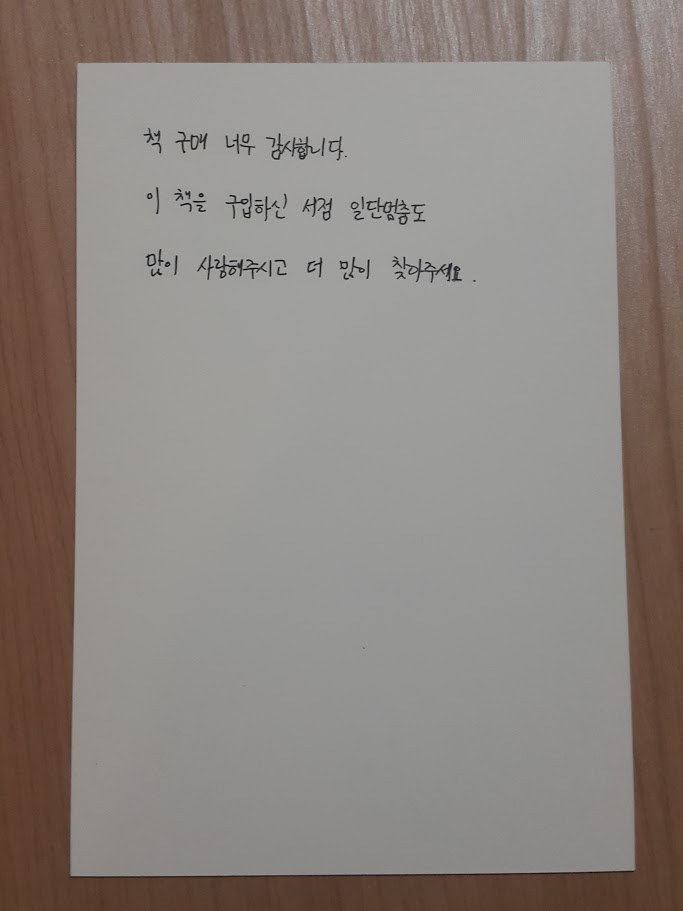 책 구매 너무 감사합니다.
이 책을 구입하신 서점 일단멈춤도
많이 사랑해주시고 더 많이 찾아주세요.